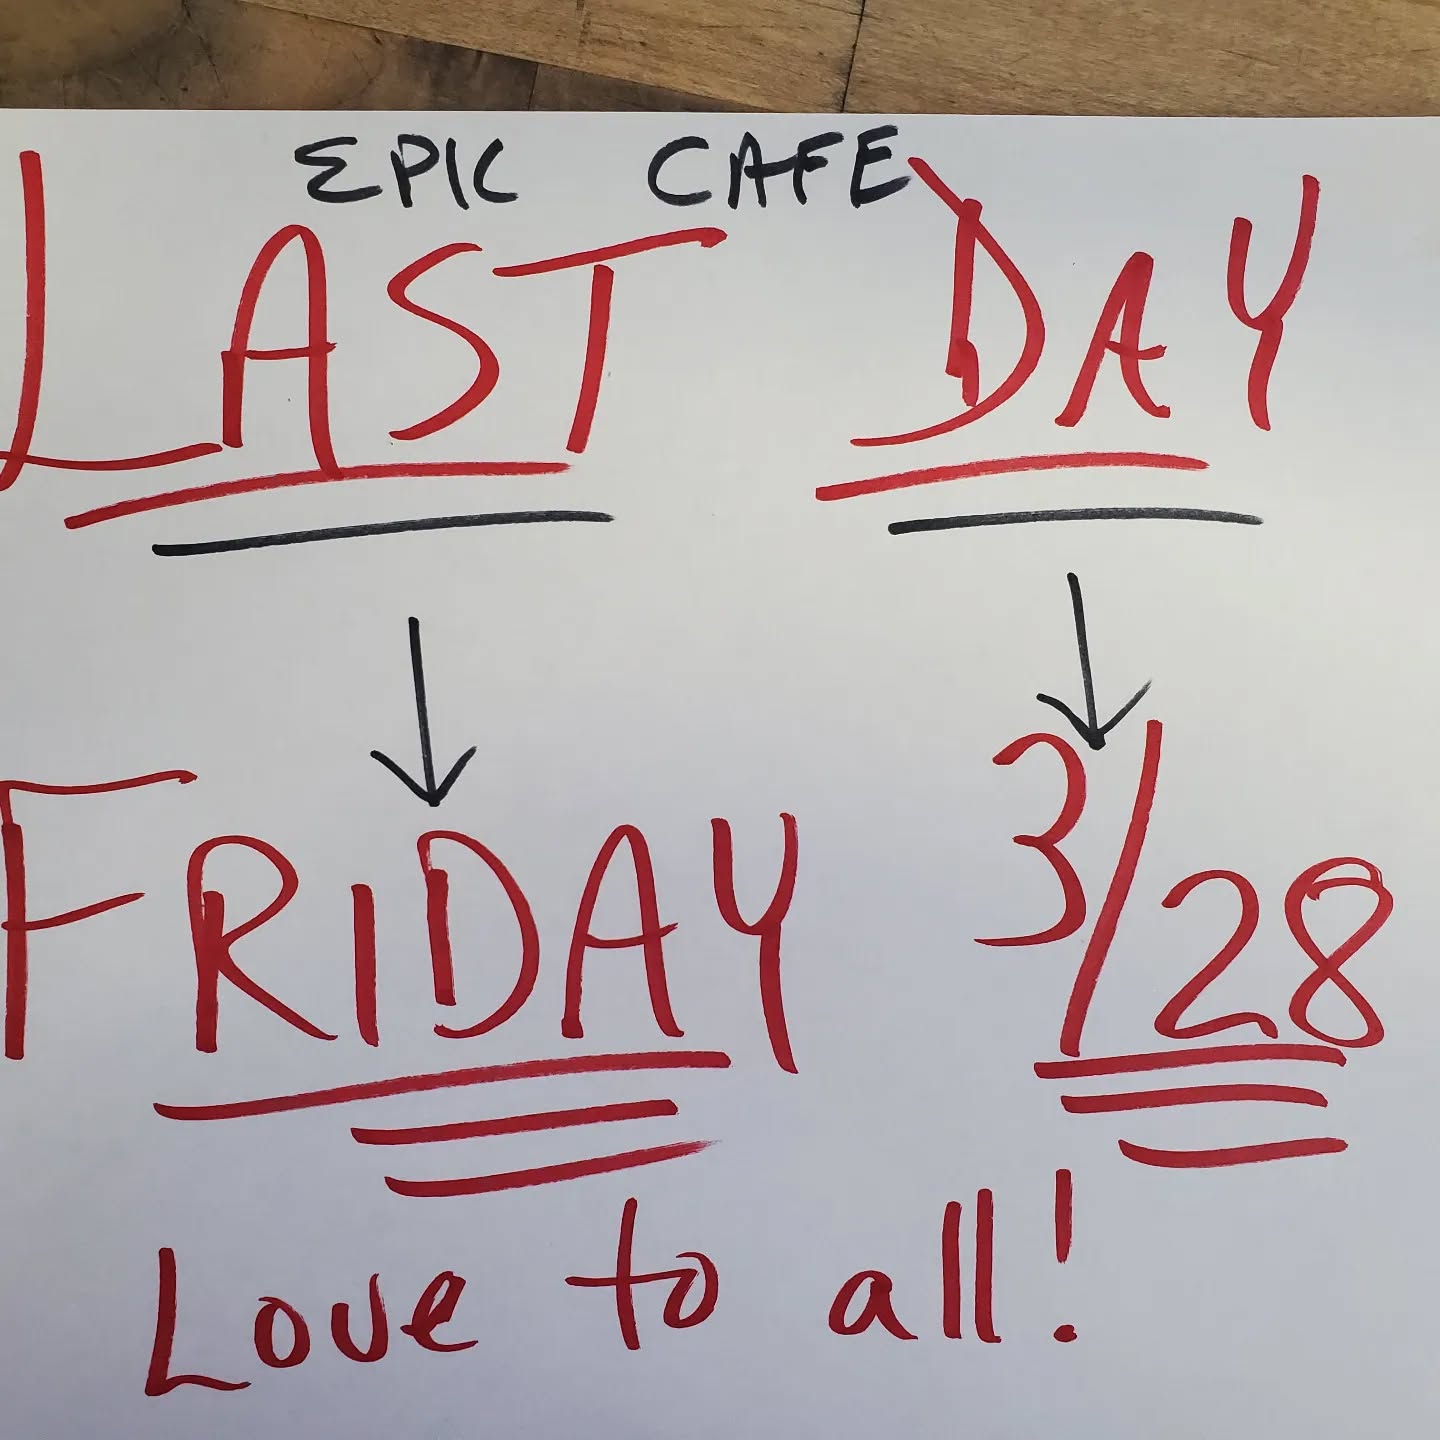 EPIC CAFE
LAST DAY
FRIDAY 3/28
Love to all!